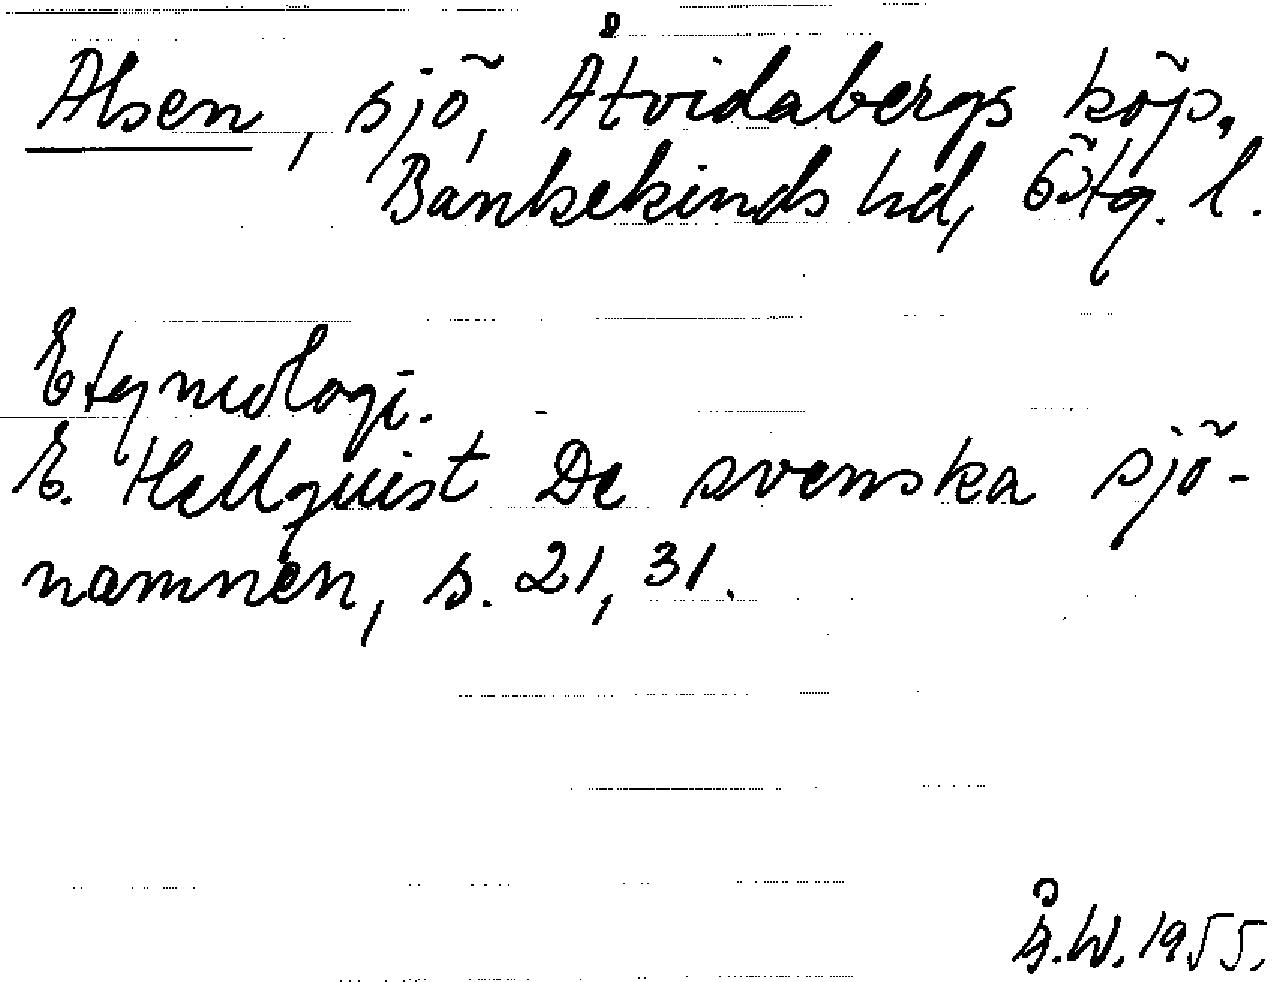 Alsen, sjö, Åtvidabergs köp.
Bankekinds hd, Östg. l.
Etymologi.
E. Hellquist De svenska sjö-
namnen, s. 21, 31.
Å.W. 1955.